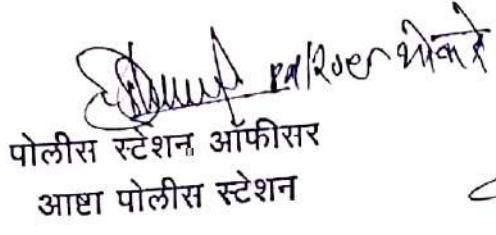 भोकरे
पोलीस स्टेशन ऑफीसर
आष्टा पोलीस स्टेशन